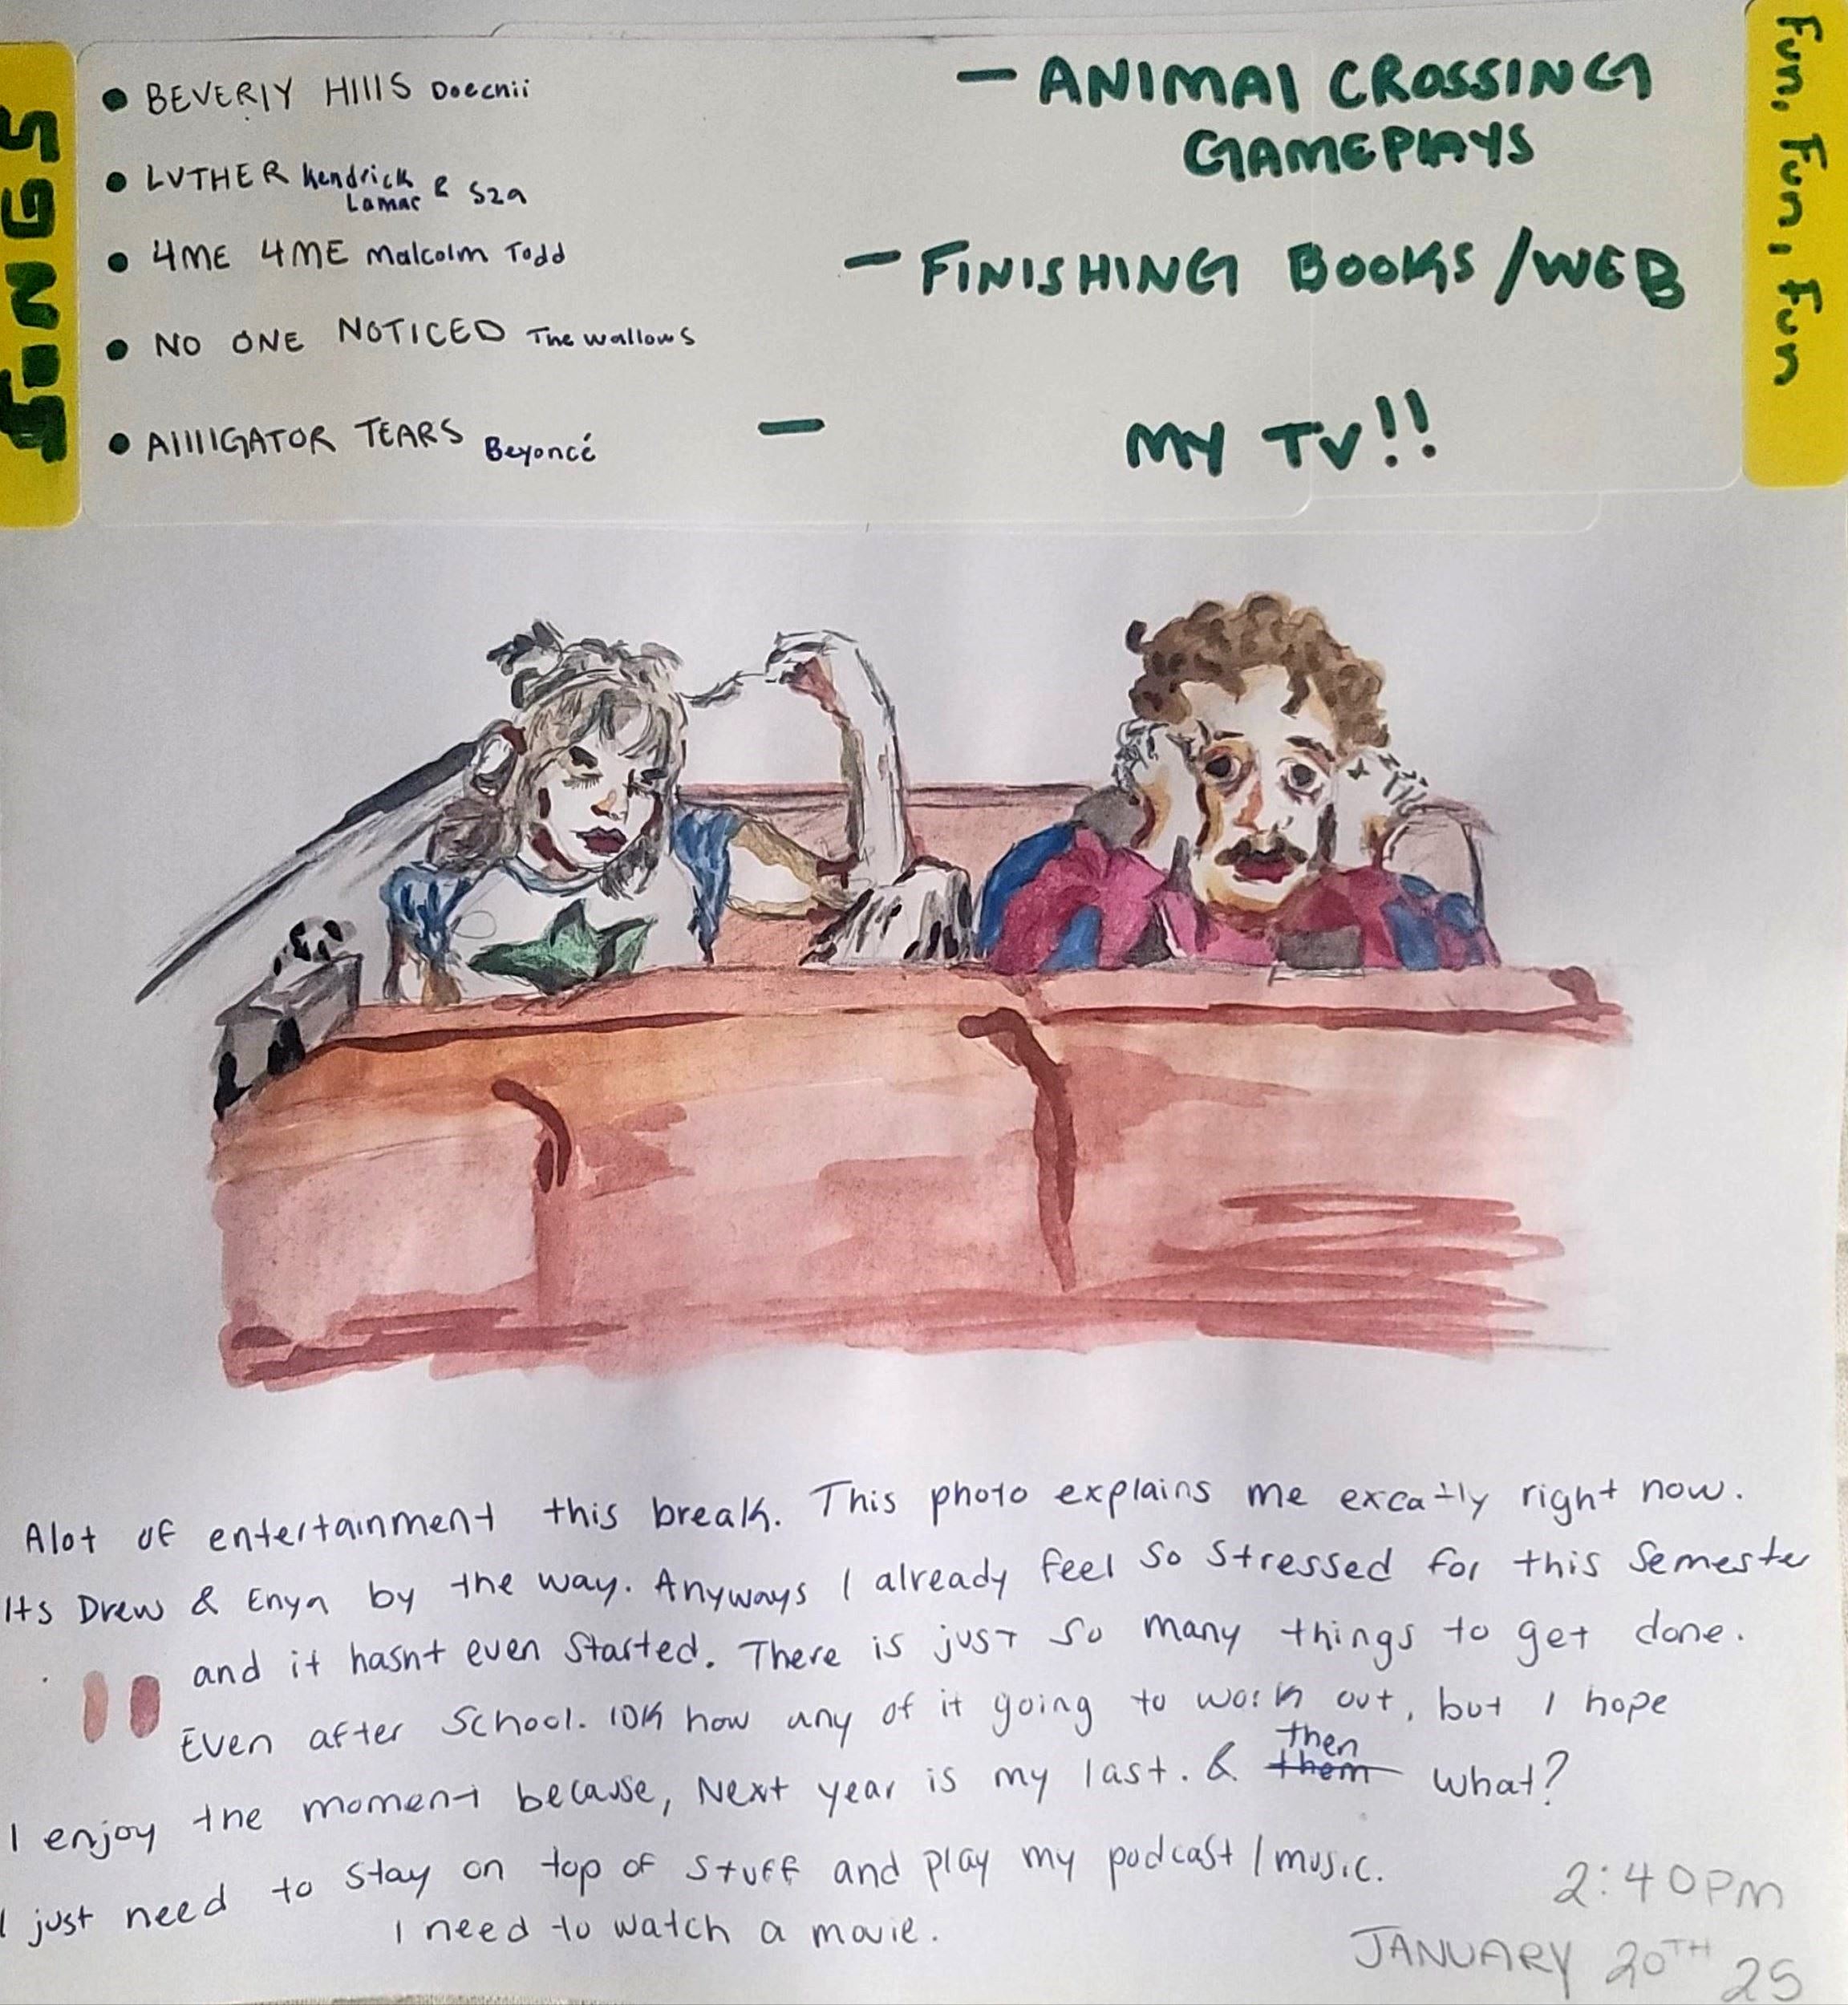 SONGS
• BEVERLY HILLS Doecnii
• LUTHER Kendrick Lamar & Sza
• 4ME 4ME Malcolm Todd
• NO ONE NOTICED The wallows
• AllllGATOR TEARS Beyoncé
Fun, Fun, Fun
- ANIMAL CROSSING
GAMEPLAYS
- FINISHING BOOKS /WEB
- MY TV!!
Alot of entertainment this break. This photo explains me excatly right now.
Its Drew & Enya by the way. Anyways I already feel so stressed for this semester
and it hasnt even started. There is just so many things to get done.
Even after school. IDK how any of it going to work out, but I hope
I enjoy the moment because, Next year is my last. & them then what?
I just need to stay on top of stuff and play my podcast / music.
I need to watch a movie.
2:40PM
JANUARY 20TH 25